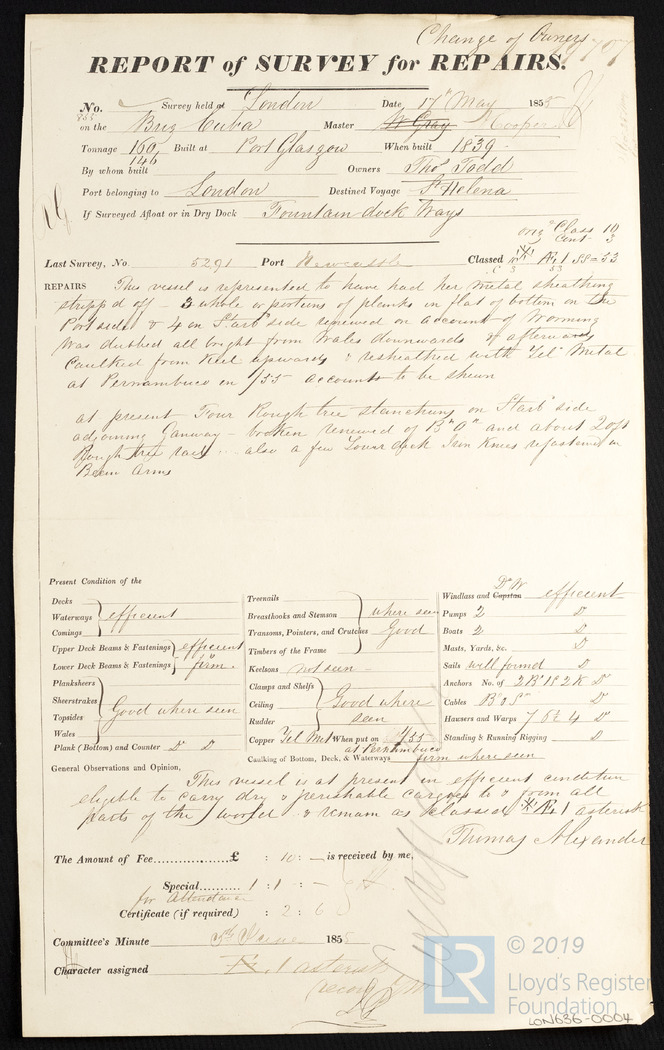 Change of Owners
REPORT of SURVEY for REPAIRS.
No. Survey held at London Date 17th May 1855
on the Brig Cuba Master W Gray Cooper
Tonnage 160 Built at Port Glasgow When built 1839
146
By whom built Owners Thos Todd
Port belonging to London Destined Voyage St Helena
If Surveyed Afloat or in Dry Dock Fountain dock Ways
orig Class 10
Cont 3
Last Survey, No. 5291 Port Newcastle Classed Æ 1 SS=53
REPAIRS This vessel is represented to have had her metal sheathing
stripp'd off - 3 whole or portions of planks in flat of bottom on the
Port side & 4 on Starb side renewed on account of Worming
Was dubbed all bright from Wales downwards & afterwards
Caulked from Keel upwards & resheathed with Yel Metal
at Pernambuco in 1/55 accounts to be shewn
at present Four Rough tree stanchions on Starb side
adjoining Ganway - broken renewed of B "O" and about 20 ft
Rough tree rail - also a few Lower deck Iron Knees refastened in
Beam Arms
Present Condition of the
Decks
Waterways efficient
Comings
Upper Deck Beams & Fastenings efficient
Lower Deck Beams & Fastenings & firm.
Planksheers
Sheerstrakes
Topsides Good where seen
Wales
Plank (Bottom) and Counter Do Do
Treenails
Breasthooks and Stemson where seen
Transoms, Pointers, and Crutches Good
Timbers of the Frame
Keelsons not seen
Clamps and Shelfs
Ceiling Good where
Rudder seen
Copper Yel Met When put on 1/55
at Pernambuco
Caulking of Bottom, Deck, & Waterways firm where seen
Windlass and Capstan efficient
Pumps 2 Do
Boats 2 Do
Masts, Yards, &c. Do
Sails well found Do
Anchors No. of 2 Br 1 S 2 K Do
Cables Do
Hawsers and Warps Do
Standing & Running Rigging Do
General Observations and Opinion,
This vessel is at present in efficient condition
eligible to carry dry & perishable cargoes to & from all
parts of the World & remain as classed Æ 1 asterisk
Thomas Alexander
The Amount of Fee............£ : 10 : — is received by me,
Special.......... 1 : 1 : —
for Attendance
Certificate (if required) : 2 : 6
Committee's Minute 5th June 1855
Character assigned Æ 1 asterisk
LR
© 2019
Lloyd's Register
Foundation
LON636-0004